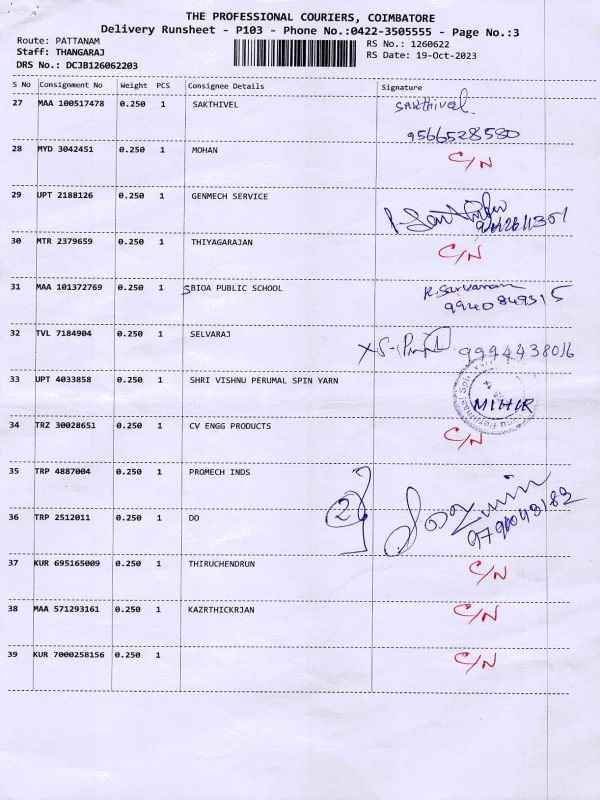 THE PROFESSIONAL COURIERS, COIMBATORE
Delivery Runsheet - P103 - Phone No.:0422-3505555 - Page No.:3
Route: PATTANAM RS No.: 1260622
Staff: THANGARAJ RS Date: 19-Oct-2023
DRS No.: DCJB126062203
S No Consignment No Weight PCS Consignee Details Signature
27 MAA 100517478 0.250 1 SAKTHIVEL Sakthivel
9566528580
28 MYD 3042451 0.250 1 MOHAN C/N
29 UPT 2188126 0.250 1 GENMECH SERVICE
30 MTR 2379659 0.250 1 THIYAGARAJAN C/N
31 MAA 101372769 0.250 1 SBIOA PUBLIC SCHOOL R. Sarvanan
9940849315
32 TVL 7184904 0.250 1 SELVARAJ 9994438016
33 UPT 4033858 0.250 1 SHRI VISHNU PERUMAL SPIN YARN MIHIR
34 TRZ 30028651 0.250 1 CV ENGG PRODUCTS C/N
35 TRP 4887004 0.250 1 PROMECH INDS
36 TRP 2512011 0.250 1 DO 2
37 KUR 695165009 0.250 1 THIRUCHENDRUN C/N
38 MAA 571293161 0.250 1 KAZRTHICKRJAN C/N
39 KUR 7000258156 0.250 1 C/N